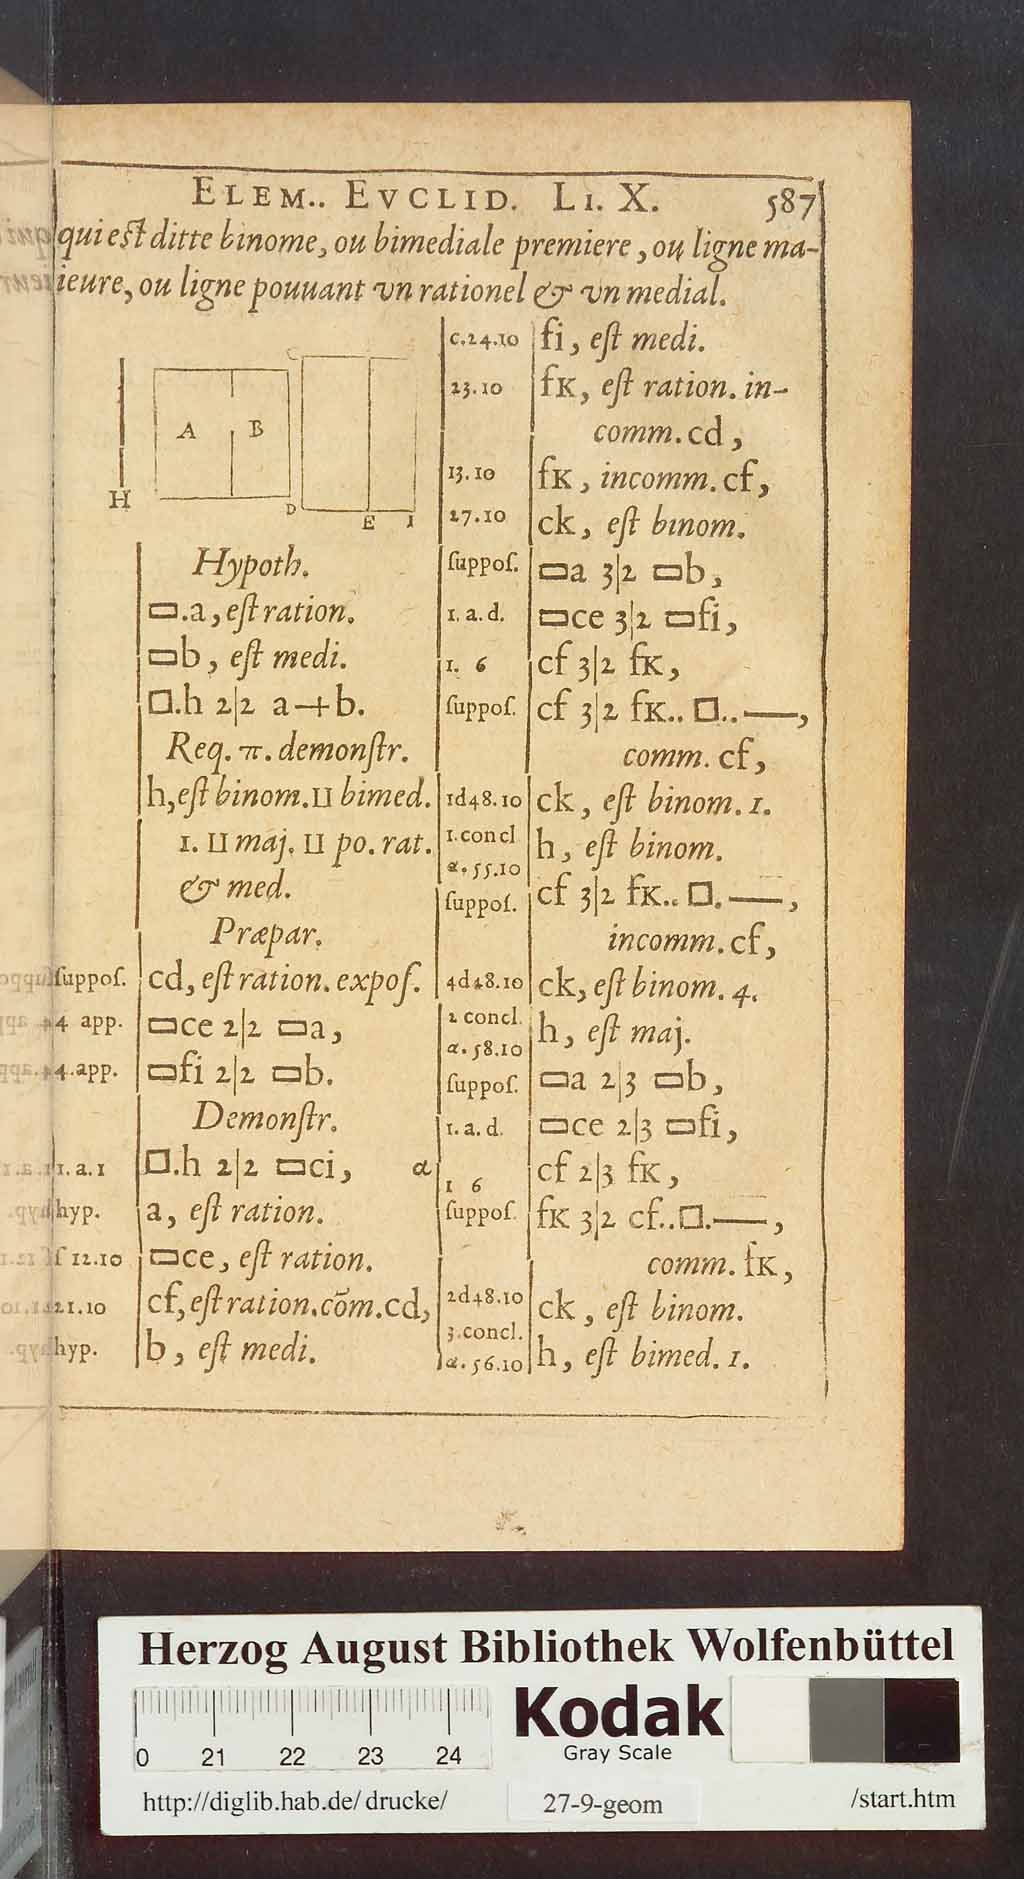 ELEM.. EVCLID. LI. X. 587
qui est ditte binome, ou bimediale premiere, ou ligne ma-
ieure, ou ligne pouuant vn rationel & vn medial.
C
A B
H
D
E I
Hypoth.
▭.a, est ration.
▭b, est medi.
□.h 2|2 a+b.
Req. π. demonstr.
h, est binom. ⊔ bimed.
1. ⊔ maj. ⊔ po. rat.
& med.
Præpar.
suppos. cd, est ration. expos.
4 app. ▭ce 2|2 ▭a,
4. app. ▭fi 2|2 ▭b.
Demonstr.
1. a. 1 □.h 2|2 ▭ci, α
hyp. a, est ration.
f 12.10 ▭ce, est ration.
21.10 cf, est ration. cõm. cd,
hyp. b, est medi.
c. 24.10 fi, est medi.
23.10 fK, est ration. in-
comm. cd,
13.10 fK, incomm. cf,
27.10 ck, est binom.
suppos. ▭a 3|2 ▭b,
1. a. d. ▭ce 3|2 ▭fi,
1. 6 cf 3|2 fK,
suppos. cf 3|2 fK.. □.. —,
comm. cf,
1d48.10 ck, est binom. 1.
1. concl h, est binom.
α. 55.10
suppos. cf 3|2 fK.. □. —,
incomm. cf,
4d48.10 ck, est binom. 4.
2 concl. h, est maj.
α. 58.10
suppos. ▭a 2|3 ▭b,
1. a. d. ▭ce 2|3 ▭fi,
1 6 cf 2|3 fK,
suppos. fK 3|2 cf.. □. —,
comm. fK,
2d48.10 ck, est binom.
3. concl.
α. 56.10 h, est bimed. 1.
Herzog August Bibliothek Wolfenbüttel
0 21 22 23 24
Kodak
Gray Scale
http://diglib.hab.de/drucke/ 27-9-geom /start.htm